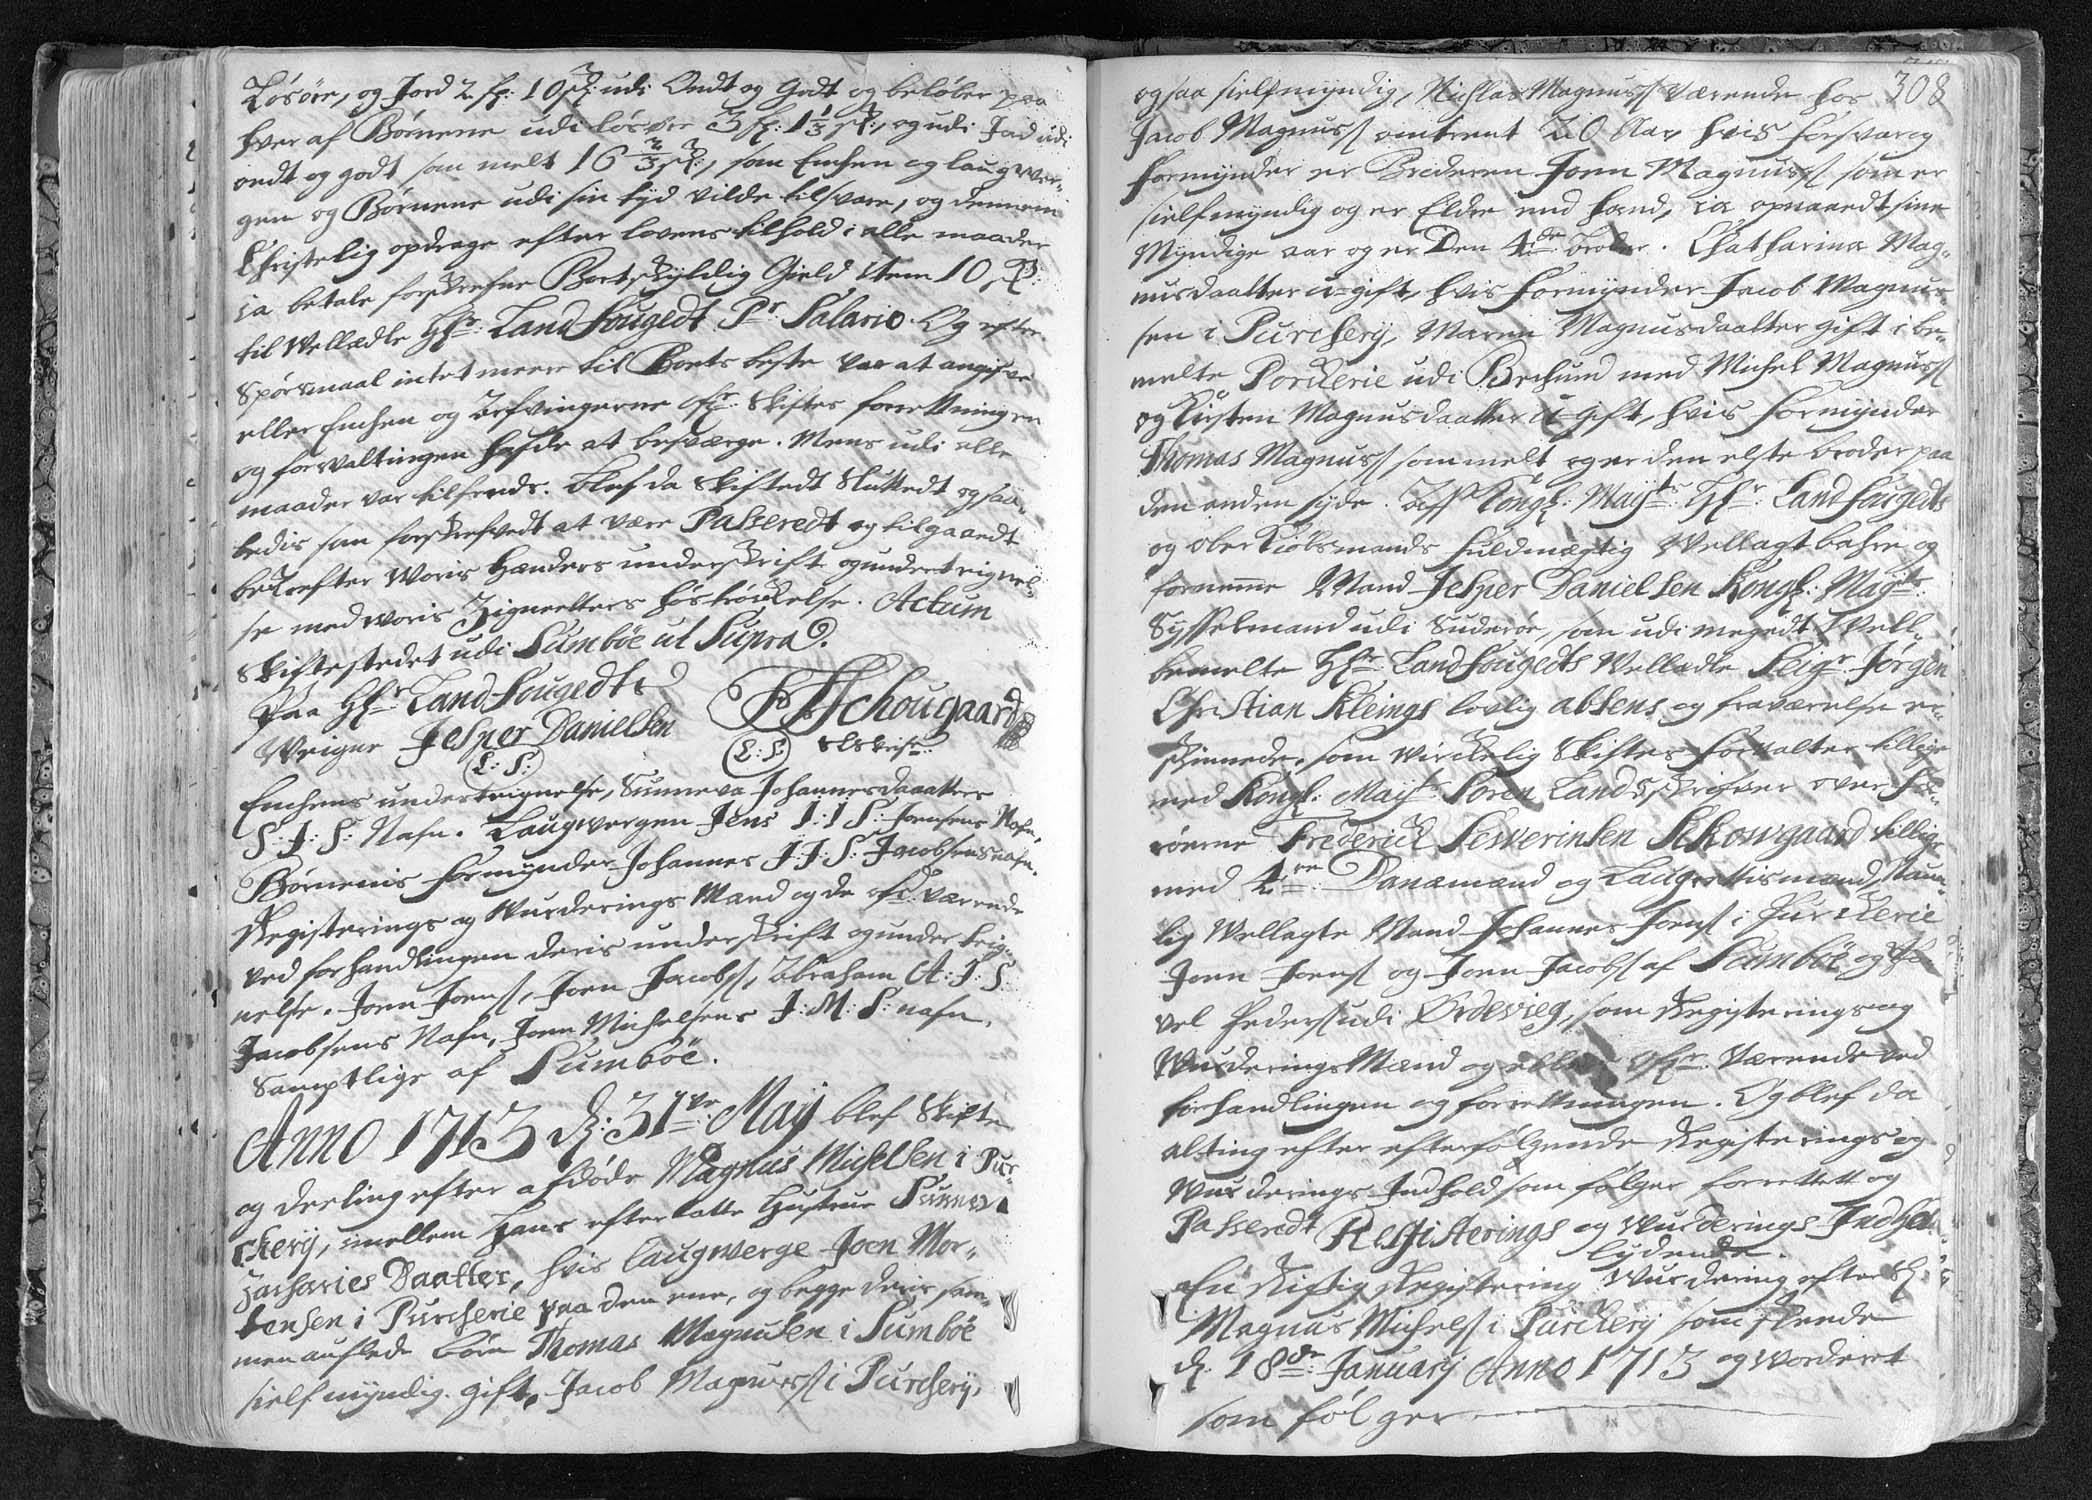 Løsøre, og Jord 2 f: 10 sk: udi Ondt og Godt og beløber paa
hver af Børnene udi løsøre 3 f: 1 1/3 sk:, og udi Jord udi
ondt og godt som melt 16 2/3 sk:, som Enchen og laugwer-
gen og Børnene udi sin tyd vilde tilsvare, og dennem
Christelig opdrage efter lovens tilhold i alle maader
ia betale forskrefne Bortskyldig Gield item 10 sk:
til Wellædle Hr: Landfougedt Pr: Salario. Og efter
Spørsmaal intet meere til Boets beste var at angifve
eller Enchen og Arfvingerne ofr: Skiftes forrettningen
og forvaltingen hafde at besværge. Mens udi alle
maader var tilfreds. Blef da Skiftedt Sluttedt og saa-
ledis som forskrefvedt at være Passeredt og tilgaaedt
bekrefter Woris Hænders underskrift og underteignel-
se med woris Zigneetters hostrøckelse. Actum
Skiftestedet udi Sumbøe ut Supra.
Paa Hr: Landfougedts
Weigne Jesper Danielsen FSSchougaard
L: S: L: S: SLSkrifr:
Enchens underteignelse, Sunneva Johannesdaatters
S: J: S: Nafn. Laugwergen Jens J: J S: Joensens Nafn.
Børnenis Formynder Johannes J: J: S: Jacobsens nafn.
Registerings og Wurderings Mænd og de ofr: værende
ved forhandlingen deris underskrift og underteig-
nelse. Joen Joenss, Joen Jacobss, Abraham A: J: S:
Jacobsens Nafn, Joen Michelsens J: M: S: nafn.
Samptlige af Sumbøe.
Anno 1713 d: 31te May blef Skifte
og deeling efter afdøde Magnus Michelsen i Pur-
ckerij, imellem Hans efterlatte Hustrue Sunneva
Zacharies Daatter, hvis laugwerge Joen Mor-
tensen i Purcherie paa den ene, og begge deris sam-
men auflede børn Thomas Magnusen i Sumbøe
sielfmyndig. gift, Jacob Magnuss i Purcherij,
308
og saa sielfmyndig, Nichlas Magnuss Værende hos
Jacob Magnuss omtrent 20 Aar hvis forsvar og
Formynder er Broderen Joen Magnuss som er
sielfmyndig og er Eldre end hand, ia opnaaedt sine
Myndige aar og er Den 4de broder. Chatharina Mag-
nusdaatter u-gift, hvis Formynder Jacob Magnus-
sen i Purcherij, Maren Magnusdaatter gift i be-
melte Porckerie udi Brehund med Michel Magnuss
og Kirsten Magnusdaatter u-gift, hvis Formynder
Thomas Magnuss som melt og er den elste broder paa
den anden syde. Aff Kongl: Mayts: Hr: Landfougedts
og ober Kiøbmands fuldmægtig Wellagt bahre og
fornemme Mand Jesper Danielsen Kongl: Mayts:
Sysselmand udi Suderøe, som udi megedt Well-
bemelte Hr: Landfougedts Wellædle Seigr: Jørgen
Christian Kleings lovlig absens og fraværelse er-
skinnede, som wirckelig Skiftes forvalter tillige
med Kongl: Mayts: Soren Landsskrifver over Fæ-
røerne Frederick Sewerinsen Schowgaard tillige
med 4re: Danæmænd og Laugrettismænd, Naun-
lig Wellagte Mænd Johannes Joenss i Purckerie
Joen Joenss og Joen Jacobss af Sumbøe og Po-
vel Pederss udi Ørdevieg, som Registerings og
Wurderings Mænd og ofr: Værende ved
forhandlingen og forrettningen. Og blef da
alting efter efterfølgende Registerings og
Wurderings Indhold som følger forrettett og
Passeredt Registerings og Wurderings Indhold
lydende.
En Rigtig Registering Wurdering efter S:
Magnus Michelss i Purckerij som skeede
d: 18de January Anno 1713 og worderet
som følger